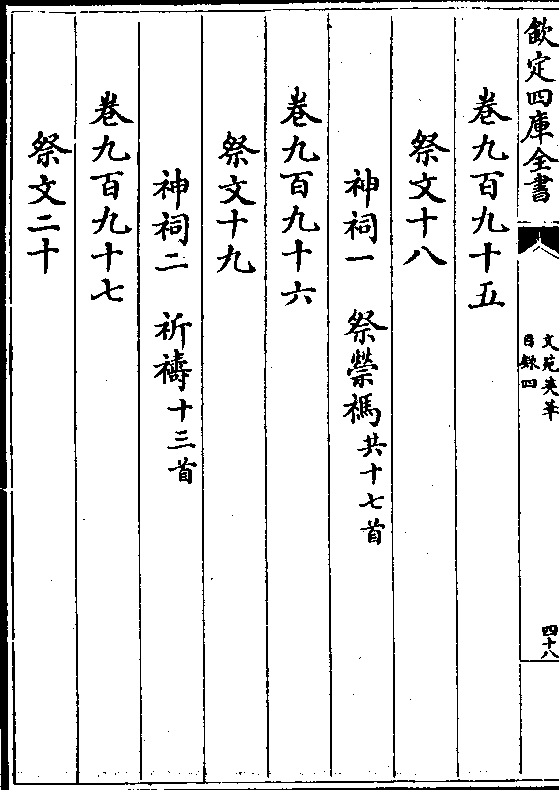 欽定四庫全書
文苑英華
目錄四
四十八
卷九百九十五
祭文十八
神祠一　祭禜禡共十七首
卷九百九十六
祭文十九
神祠二　祈禱十三首
卷九百九十七
祭文二十